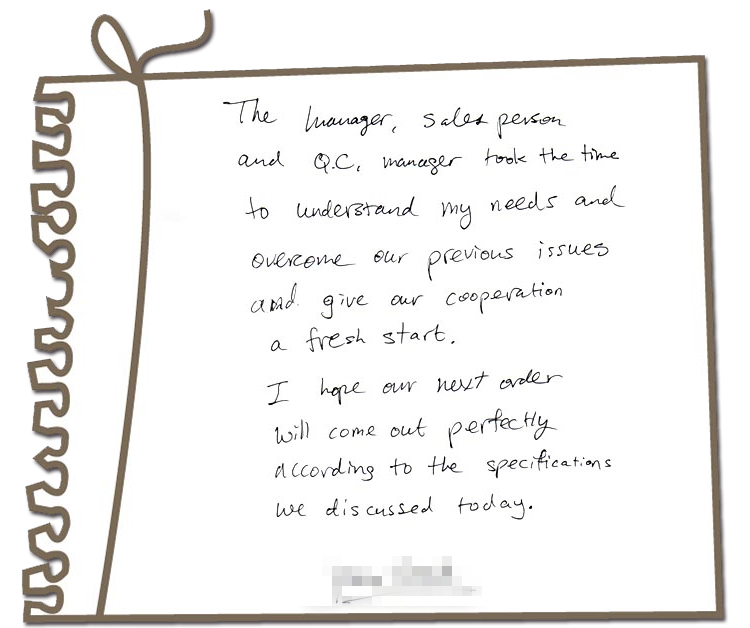 The manager, sales person
and Q.C. manager took the time
to understand my needs and
overcome our previous issues
and give our cooperation
a fresh start.
I hope our next order
will come out perfectly
according to the specifications
we discussed today.